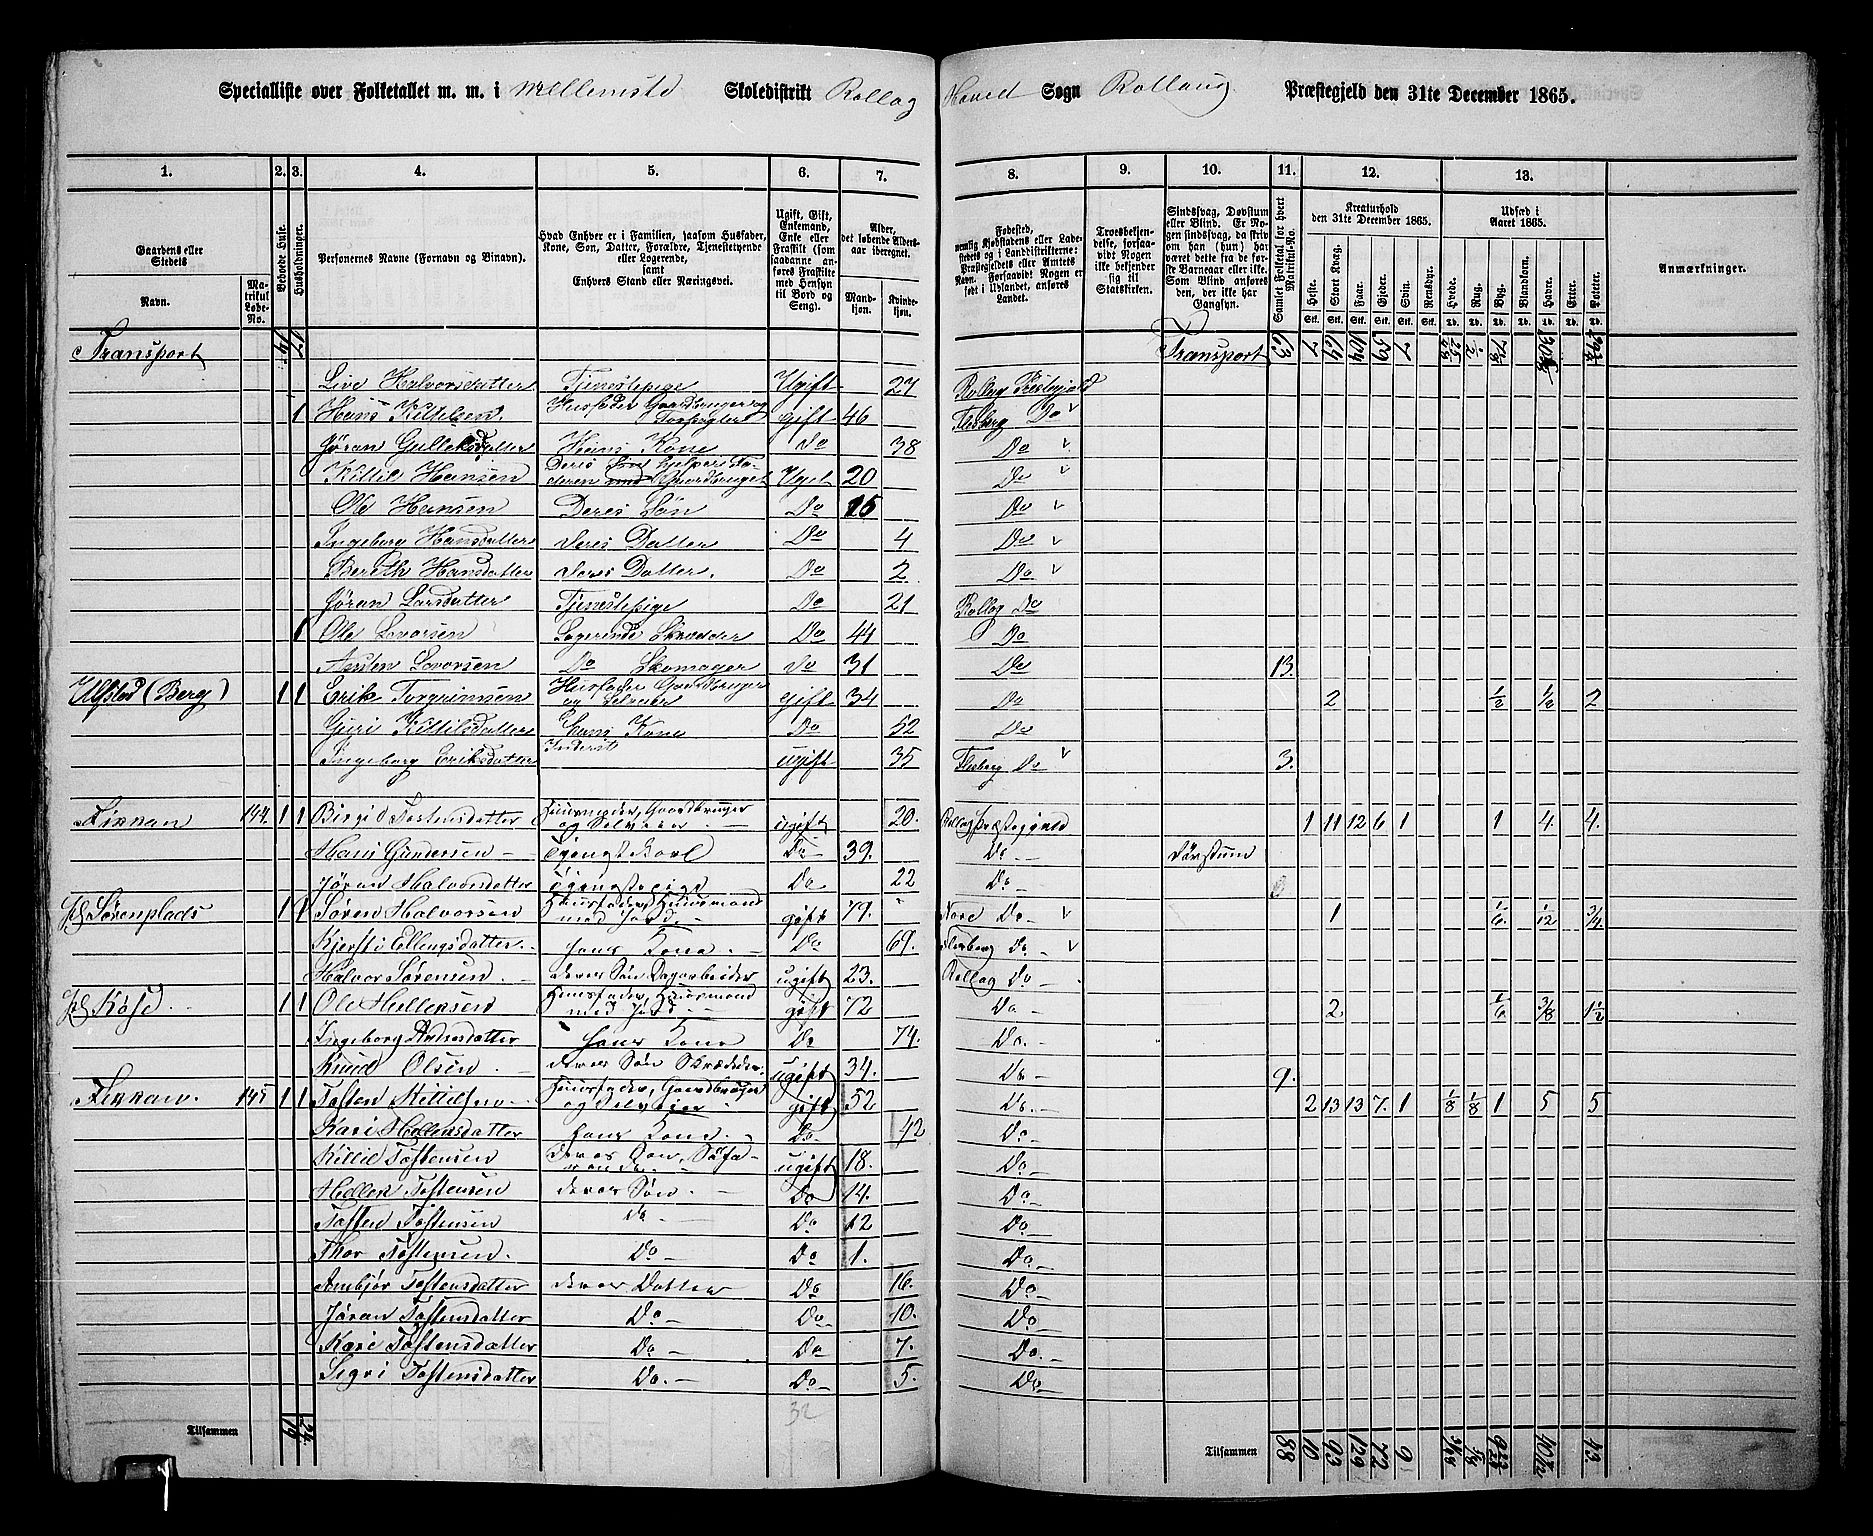 Specialliste over Folketallet m. m. i Mellemste Skoledistrikt Rollag Hoved Sogn Rollaug Præstegjeld den 31te December 1865.
1. 2. 3. 4. 5. 6. 7. 8. 9. 10. 11. 12. 13.
Gaardens eller Stedets
Navn.
Matrikul Løbe-No.
Beboede Huse.
Husholdninger.
Personernes Navne (Fornavn og Binavn).
Hvad Enhver er i Familien, saasom Husfader, Kone, Søn, Datter, Forældre, Tjenestetyende eller Logerende, samt Enhvers Stand eller Næringsvei.
Ugift, Gift, Enkemand, Enke eller Fraskilt (saadanne anføres som Fraskilte med Hensyn til Bord og Seng).
Alder, det løbende Aldersaar iberegnet.
Mandkjøn. Kvindekjøn.
Fødested,
Troesbekjendelse, forsaavidt Nogen ikke bekjender sig til Statskirken.
Sindssvag, Døvstum eller Blind.
Samlet Folketal for hvert Matrikul-No.
Kreaturhold den 31te December 1865.
Heste. Stort Kvæg. Faar. Gjeder. Svin. Rensdyr.
Udsæd i Aaret 1865.
Hvede. Rug. Byg. Blandkorn. Havre. Erter. Poteter.
Anmærkninger.
Transport 14 17 Transport 63 7 64 104 59 7
Live Halvorsdatter Tjenestepige Ugift 27 Rollag Præstegjeld
1 Hans Kittilsen Husfader Gaardbruger og gift 46 Flesberg Do
Jøran Gulleksdatter Hans Kone Do 38 Do
Kittil Hansen Deres Søn hjelper Faderen med Gaardbruget Ugift 20 Do
Ole Hansen Deres Søn Do 15 Do
Ingeborg Hansdatter Deres Datter Do 4 Do
Berith Hansdatter Deres Datter. Do 2 Do
Jøran Larsdatter Tjenestepige Do 21 Rollag Do
1 Ole Lovorsen Logerende Skrædder Do 44 Do
Aesten Lovorsen Do Skomager Do 31 Do 13.
Ulfsted (Berg) 1 1 Erik Torgrimsen Husfader Gaardbruger og Selveier gift 34 Do 2 1/2 1/2 2
Guri Kittilsdatter Hans Kone Do 52 Do
Ingeborg Eriksdatter Inderst ugift 35 Flesberg Do 3.
Firnan 144. 1 1 Birgit Tostensdatter Huusmoder, Gaardbruger og Selveier ugift 20. Rollag Præstegjeld 1 11 12 6 1 1 4. 4.
Hans Gundersen Tjenestekarl Do 39. Do. Dövstum
Jøran Halvorsdatter Tjenestepige Do 22 Do
Pl Sørenplads 1 1 Søren Halvorsen Huusfader, Huusmand med Jord gift 79. Nore Do 1 1/6 1/12 3/4
Kjersti Ellingsdatter Hans Kone Do 69. Flesberg Do
Halvor Sørensen deres Søn Dagarbeider ugift 23. Rollag Do
Pl Køse 1 1 Ole Hellensen Huusfader, Huusmand med Jord gift 72 Do 2 1/6 3/8 1 1/2
Ingeborg Andersdatter Hans Kone Do 74. Do.
Knud Olsen deres Søn Skrædder. ugift 34. Do 9.
Firnan. 145 1 1 Tosten Kittilsen Huusfader, Gaardbruger og Selveier gift 52 Do. 2 13 13 7. 1 1/8 1/8 1 5 5
Kari Hellensdatter Hans Kone Do 42 Do
Kittil Tostensen Deres Søn, Søfarende ugift 18. Do
Hellen Tostensen deres Søn. Do 14. Do
Tosten Tostensen Do Do 12 Do
Thor Tostensen. Do Do 1. Do
Ambjør Tostensdatter deres Datter Do 16. Do
Jøran Tostensdatter Do Do 10. Do
Kari Tostensdatter Do Do 7. Do.
Sigri Tostensdatter Do. Do 5. Do
32
Tilsammen 19 24 Tilsammen 88 10 93 129 72 9 43.